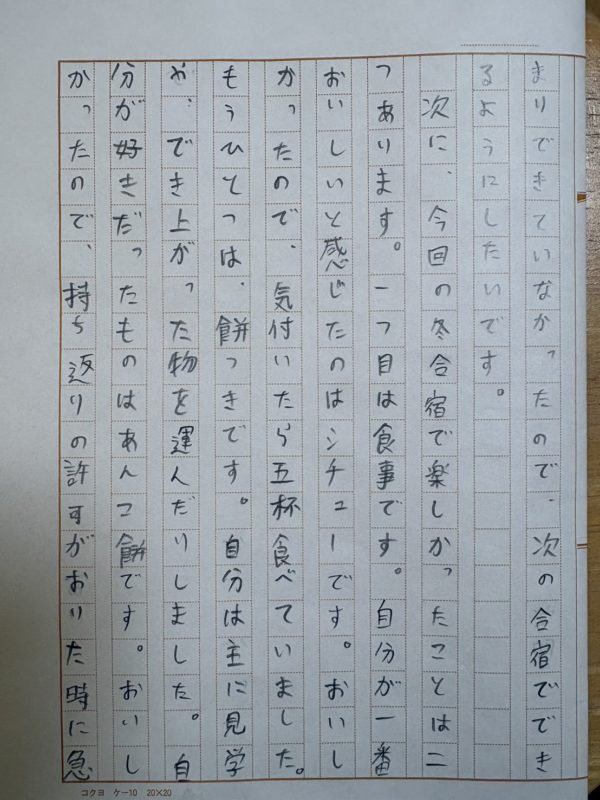 まりできていなかったので、次の合宿ででき
るようにしたいです。
次に、今回の冬合宿で楽しかったことは二
つあります。一つ目は食事です。自分が一番
おいしいと感じたのはシチューです。おいし
かったので、気付いたら五杯食べていました。
もうひとつは、餅つきです。自分は主に見学
や、でき上がった物を運んだりしました。自
分が好きだったものはあんこ餅です。おいし
かったので、持ち返りの許可がおりた時に急
コクヨ ケー10 20×20